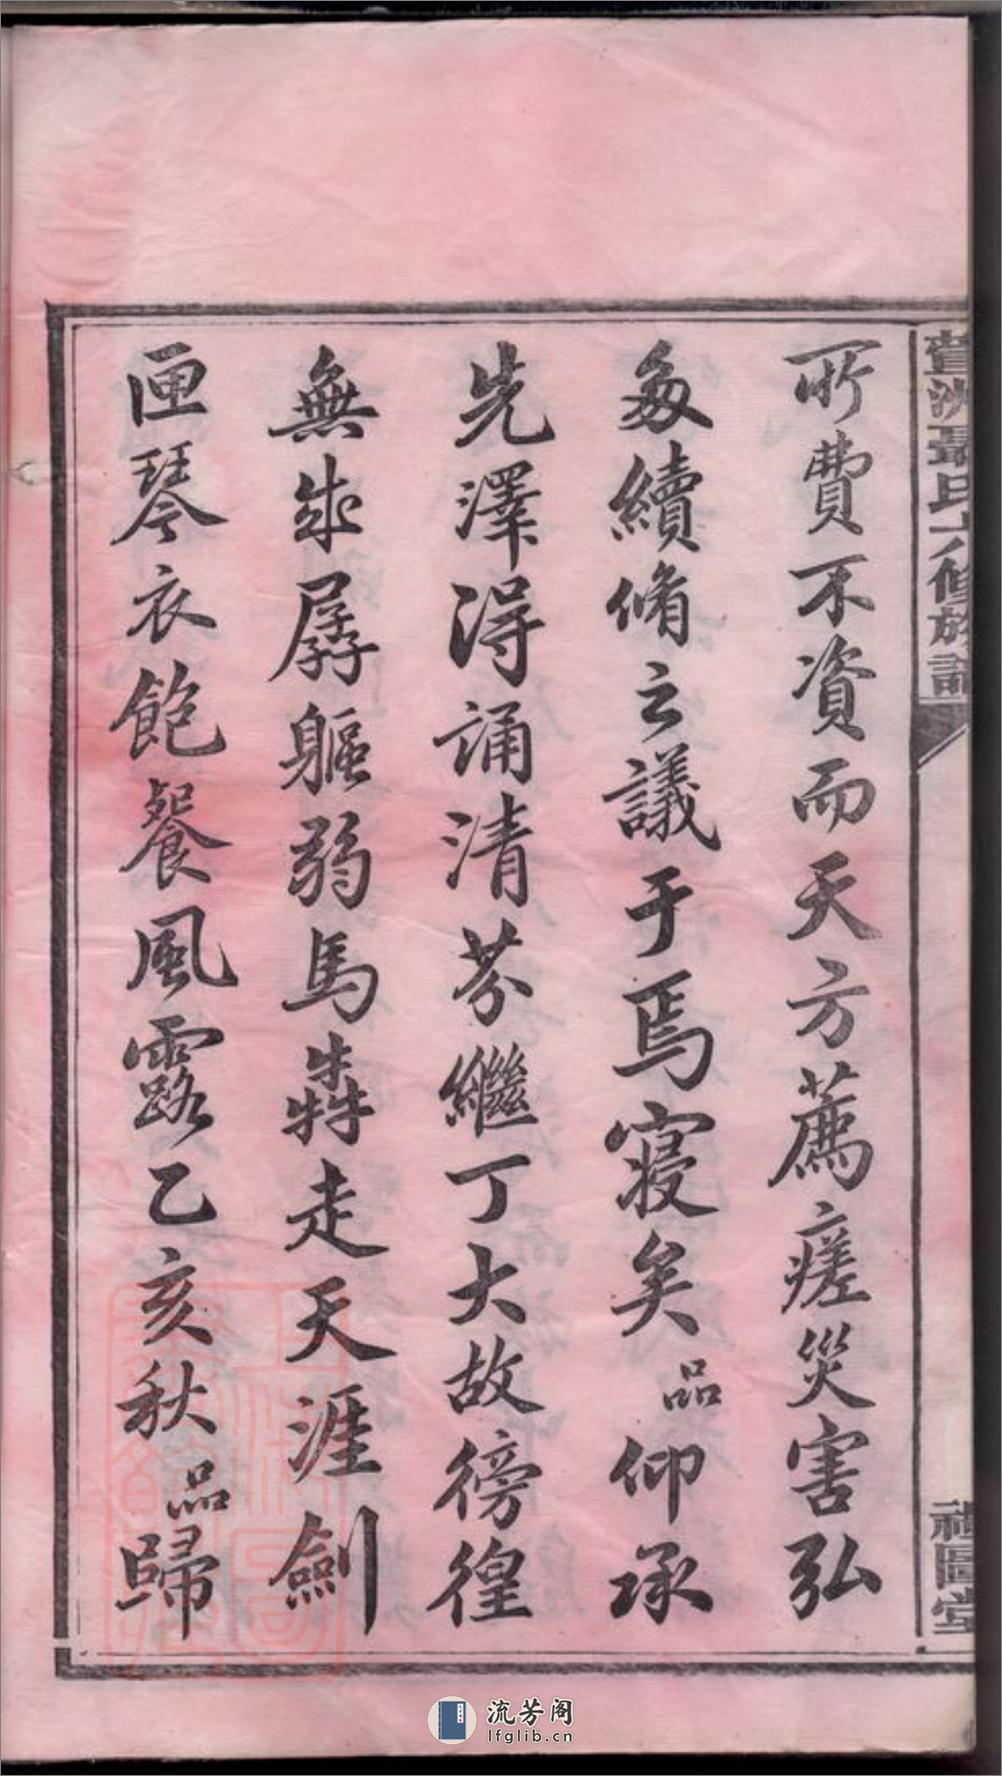 聶氏六修族譜
所費不資而天方薦瘥災害弘
多續脩之議于焉寢矣品仰承
先澤得誦清芬繼丁大故徬徨
無生孱軀弱馬犇走天涯劍
匣琴衣飽餐風露乙亥秋品歸
流芳阁
lfglib.cn